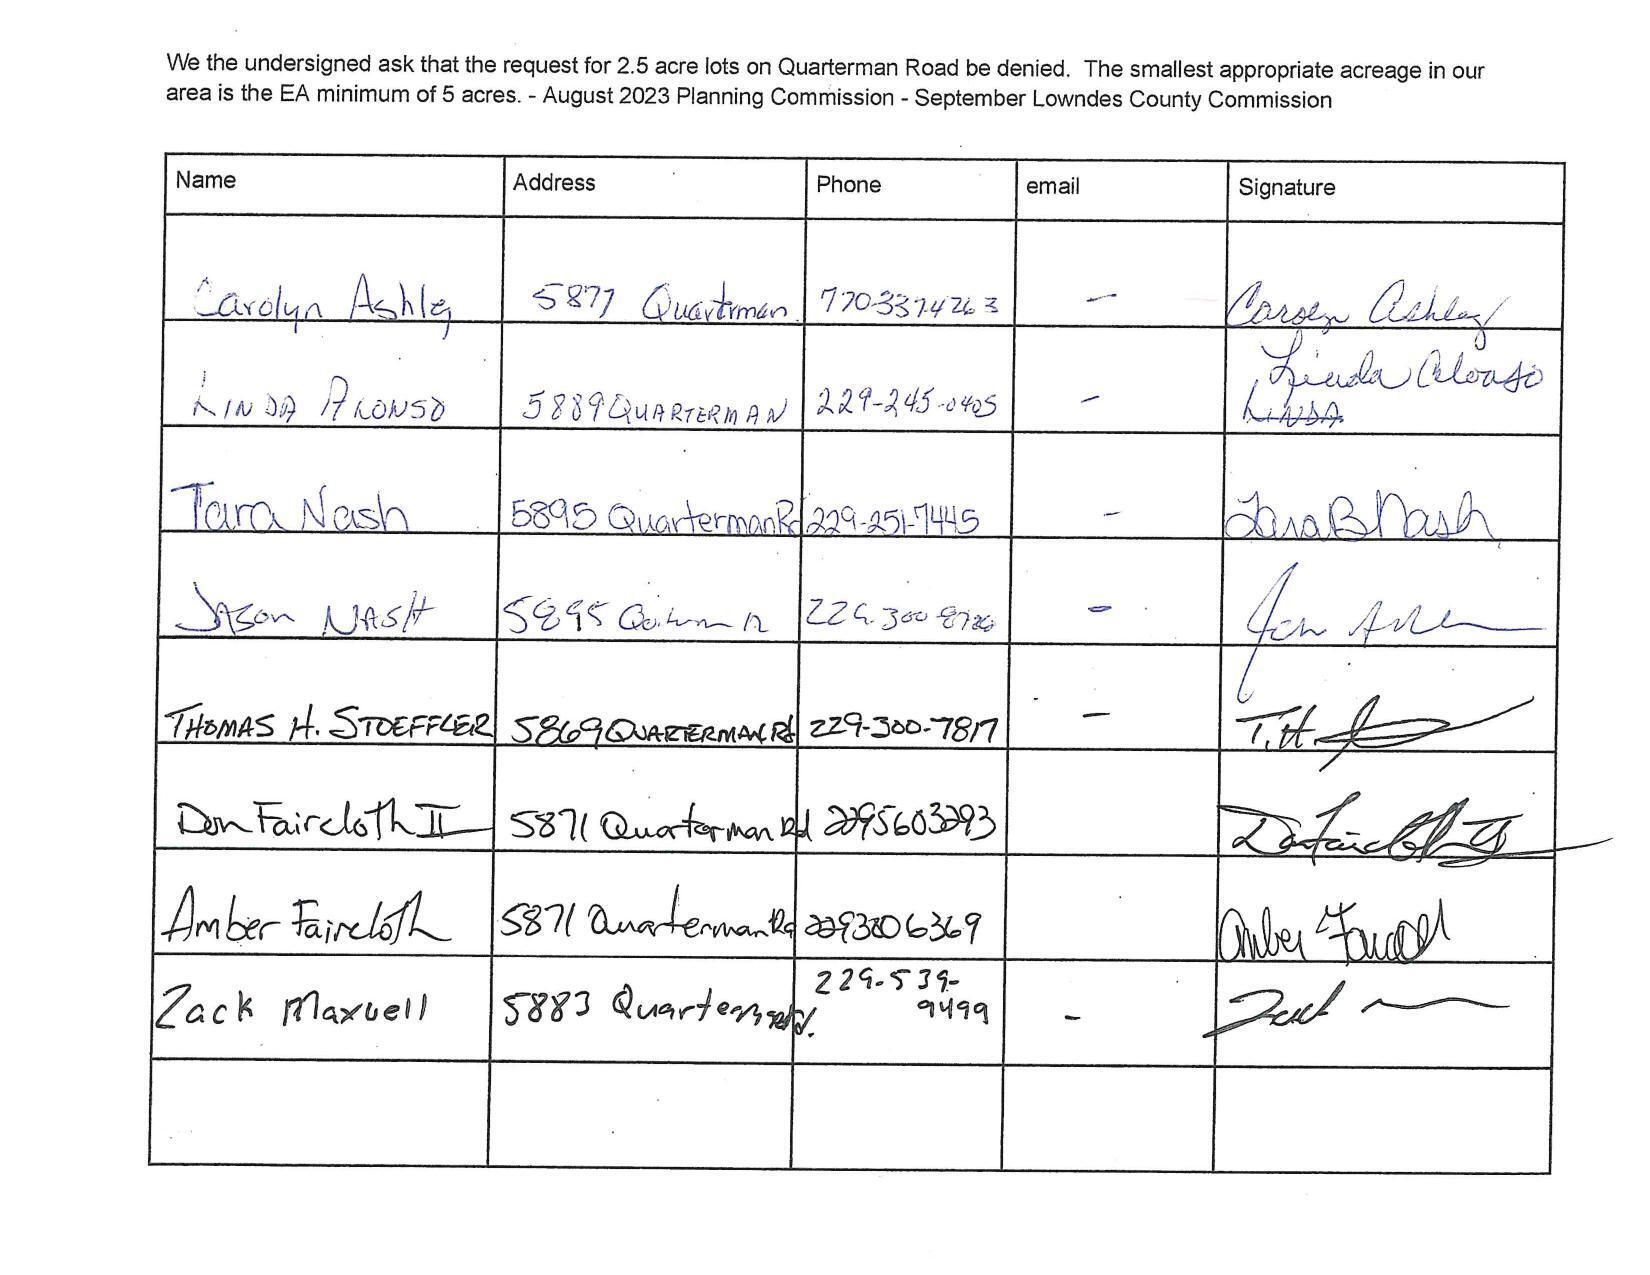 We the undersigned ask that the request for 2.5 acre lots on Quarterman Road be denied. The smallest appropriate acreage in our
area is the EA minimum of 5 acres. - August 2023 Planning Commission - September Lowndes County Commission
Name Address Phone email Signature
Carolyn Ashley 5877 Quarterman 770-337-4263 - Carolyn Ashley
LINDA ALONSO 5889 QUARTERMAN 229-245-0405 - Linda Alonso
LINDA
Tara Nash 5895 Quarterman Rd 229-251-7445 - Tara B Nash
Jason NASH 5895 229-300- -
THOMAS H. STOEFFLER 5869 QUARTERMAN Rd 229-300-7817 - T.H.
Don Faircloth II 5871 Quarterman Rd 2295603293 Don Faircloth II
Amber Faircloth 5871 Quarterman Rd 2293006369 Amber Faircloth
Zack Maxwell 5883 Quarterman Rd. 229-539-
9499 - Zack